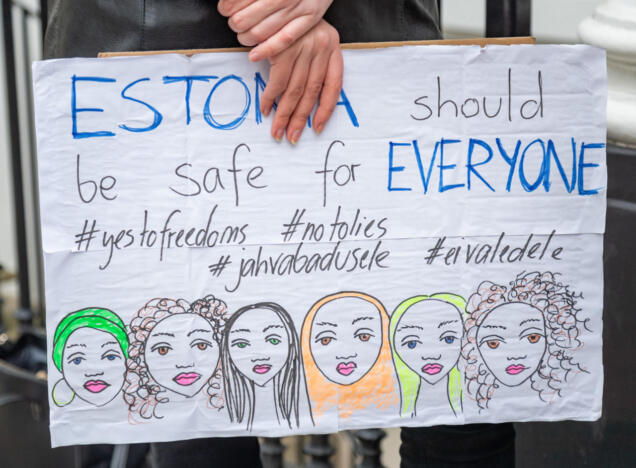 ESTONIA should
be safe for EVERYONE
#yestofreedoms #notolies
#jahvabadusele #eivaledele